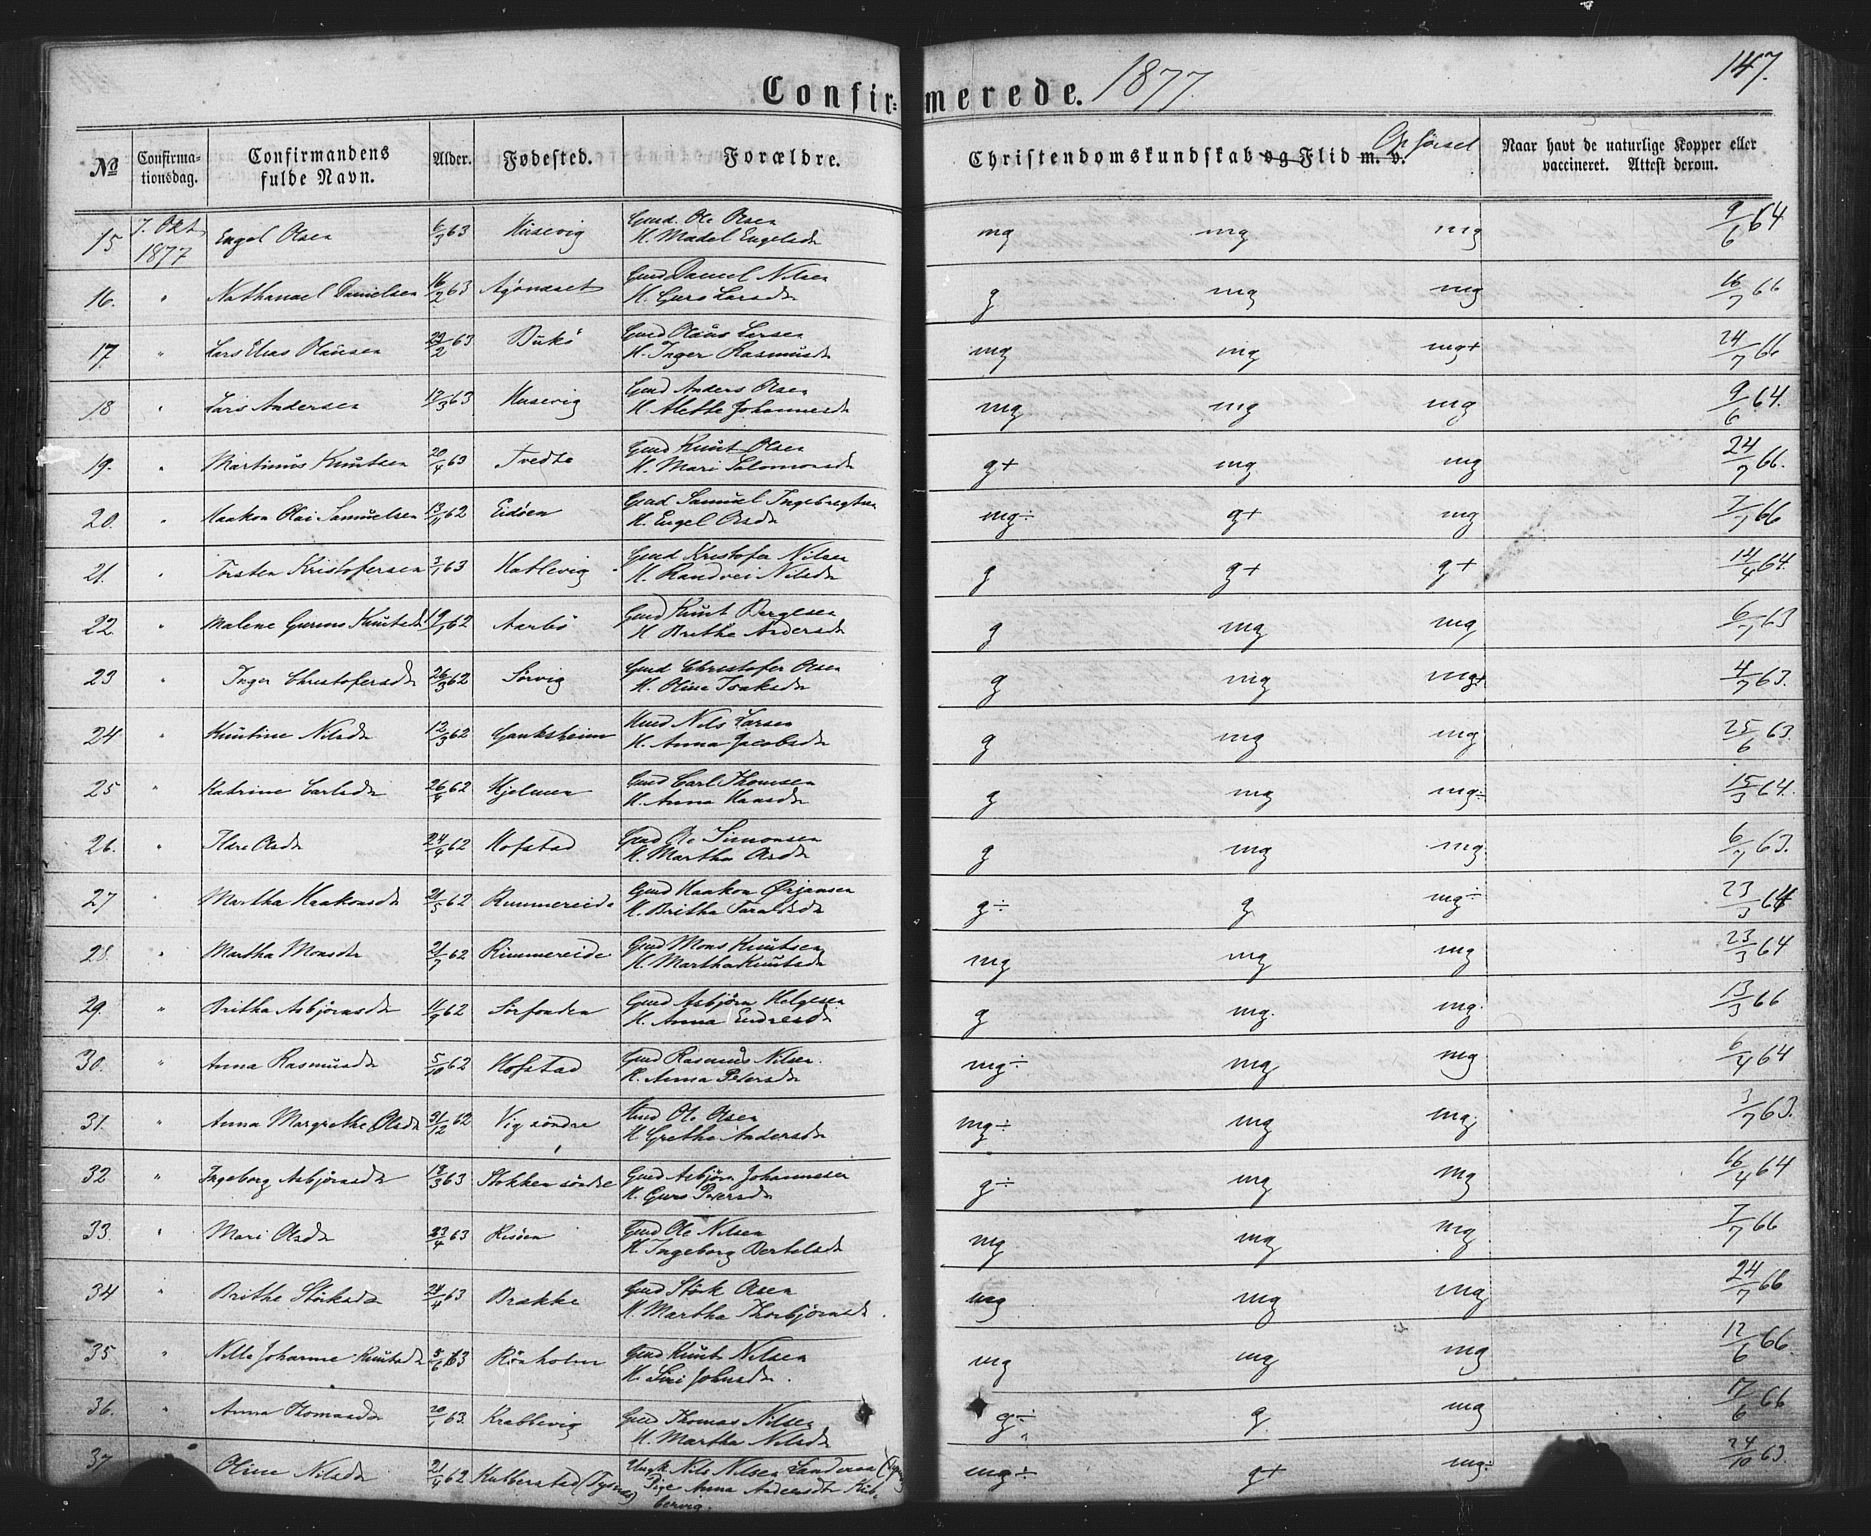 Confir= merede. 1877. 147.
№ Confirma-tionsdag. Confirmandens fulde Navn. Alder. Fødested. Forældre. Christendomskundskab og Flid m. v. Opførsel Naar havt de naturlige Kopper eller vaccineret. Attest derom.
15 7. Okt, 1877 Engel Olsen 6/3 63 Husevig Gmd. Ole Olsen H. Madel Engelsdr mg mg mg 9/6 64
16. " Nathanael Danielsen 16/2 63 Gmd Daniel Nilsen H. Guro Larsdr g mg mg 16/7 66
17. " Lars Elias Olausen 22/2 63 Bukö Gmd Olaus Larsen H. Inger Rasmusdr mg mg mg+ 24/7 66
18 " Lars Andersen 17/3 63 Husevig Gmd Anders Olsen H. Alethe Johannesdr mg mg mg 9/6 64.
19. " Martinus Knutsen 20/4 63 Tvedte Gmd Knut Olsen H. Mari Salomonsdr g+ mg mg 24/7 66.
20. " Haakon Olai Samuelsen 13/11 62 Eidöen Gmd Samuel Ingebregtsen H. Engel Olsdr mg÷ g+ mg 7/7 66
21. " Torsten Kristofersen 3/1 63 Hatlevig Gmd Kristofer Nilsen H. Randvei Nilsdr g g+ g+ 14/4 64.
22. " Malene Gurine Knutsdr 19/1 62 Aarbö Gmd Knut Bergesen H Brithe Andersdr g mg mg 6/7 63
23 " Inger Christofersdr 26/3 62 Sörvig Gmd Christofer Olsen H. Oline Isaksdr g mg mg+ 4/7 63.
24 " Knutine Nilsdr 12/3 62 Gauksheim Hmd Nils Larsen H. Anna Jacobsdr g mg mg 25/6 63.
25 " Katrine Carlsdr 26/4 62 Hjelmen Gmd Carl Thomsen H. Anna Hansdr g mg mg÷ 15/3 64.
26. " Olsdr 24/4 62 Hofstad Gmd Ole Simonsen H. Martha Olsdr g mg mg 6/7 63.
27 " Martha Haakonsdr 21/5 62 Rimmereide Gmd Haakon Ørjansen H. Britha Taraldsdr g÷ g mg÷ 23/3 64
28. " Martha Monsdr 21/7 62 Rimmereide Gmd Mons Knutsen H. Martha Knutsdr mg mg mg 23/3 64
29. " Britha Asbjörnsdr 11/9 62 Sörfonden Gmd Asbjörn Helgesen H. Anna Endresdr g mg. mg. 13/3 66
30. " Anna Rasmusdr 5/10 62 Hofstad Gmd Rasmus Nilsen. H. Anna Petersdr mg÷ mg mg 6/4 64
31. " Anna Margrethe Olsdr 31/12 62 Vig söndre Hmd Ole Olsen H Grethe Andersdr mg÷ mg mg. 3/7 63.
32 " Ingeborg Asbjörnsdr 18/3 63 Stokken söndre Gmd Asbjörn Johannesen H. Guro Petersdr g÷ mg mg 16/4 64
33. " Mari Olsdr 23/4 63 Risöen Gmd Ole Nilsen H Ingeborg Bertelsdr mg mg mg 7/7 66
34 " Brithe Störksdr 24/4 63 Brakke Gmd Störk Olsen H. Martha Thorbjörnsdr mg mg mg 24/7 66
35 " Nille Johanne Knutsdr 5/6 63 Rönholm Gmd Knut Nilsen H. Siri Johnsdr. mg mg mg 12/6 66.
36. " Anna Thomasdr 20/1 63. Krablevig Gmd Thomas Nilsen H. Martha Nilsdr g÷ g. mg 17/6 66
37 Oline Nilsdr 21/4 62 Hubberstad (Tysnes) Ungk Nils Nilsen Landeraa (Tysnes) Pige Anna Andersdr mg÷ g+ mg÷ 24/10 63.